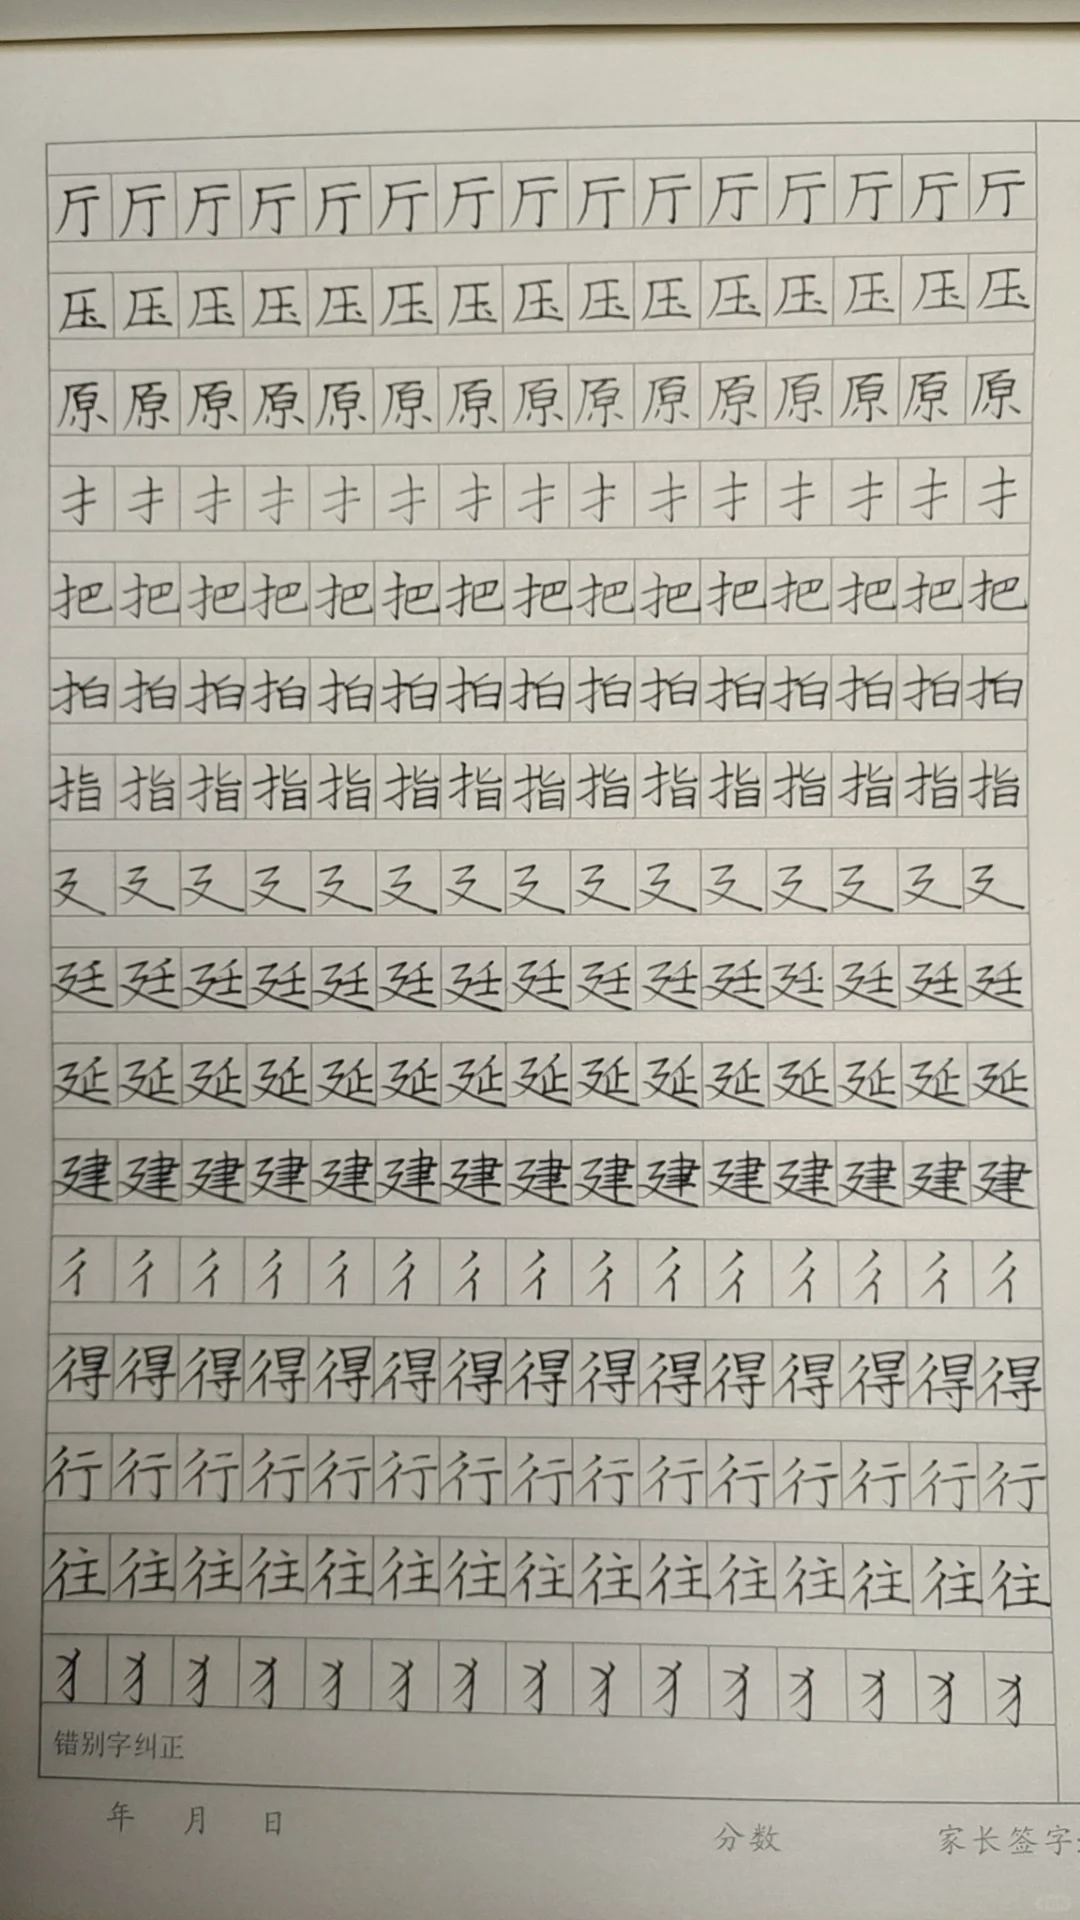 厅厅厅厅厅厅厅厅厅厅厅厅厅厅厅
压压压压压压压压压压压压压压压
原原原原原原原原原原原原原原原
扌扌扌扌扌扌扌扌扌扌扌扌扌扌扌
把把把把把把把把把把把把把把把
拍拍拍拍拍拍拍拍拍拍拍拍拍拍拍
指指指指指指指指指指指指指指指
廴廴廴廴廴廴廴廴廴廴廴廴廴廴廴
廷廷廷廷廷廷廷廷廷廷廷廷廷廷廷
延延延延延延延延延延延延延延延
建建建建建建建建建建建建建建建
彳彳彳彳彳彳彳彳彳彳彳彳彳彳彳
得得得得得得得得得得得得得得得
行行行行行行行行行行行行行行行
往往往往往往往往往往往往往往往
犭犭犭犭犭犭犭犭犭犭犭犭犭犭犭
错别字纠正
年 月 日 分数 家长签字: